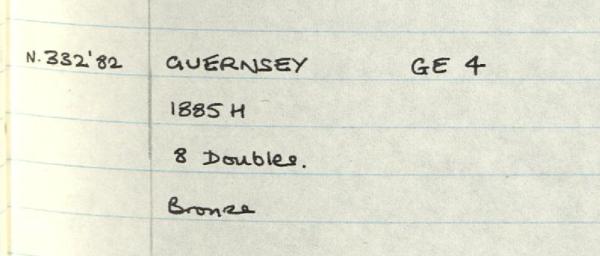 N.332'82 GUERNSEY GE 4
1885 H
8 Doubles.
Bronze